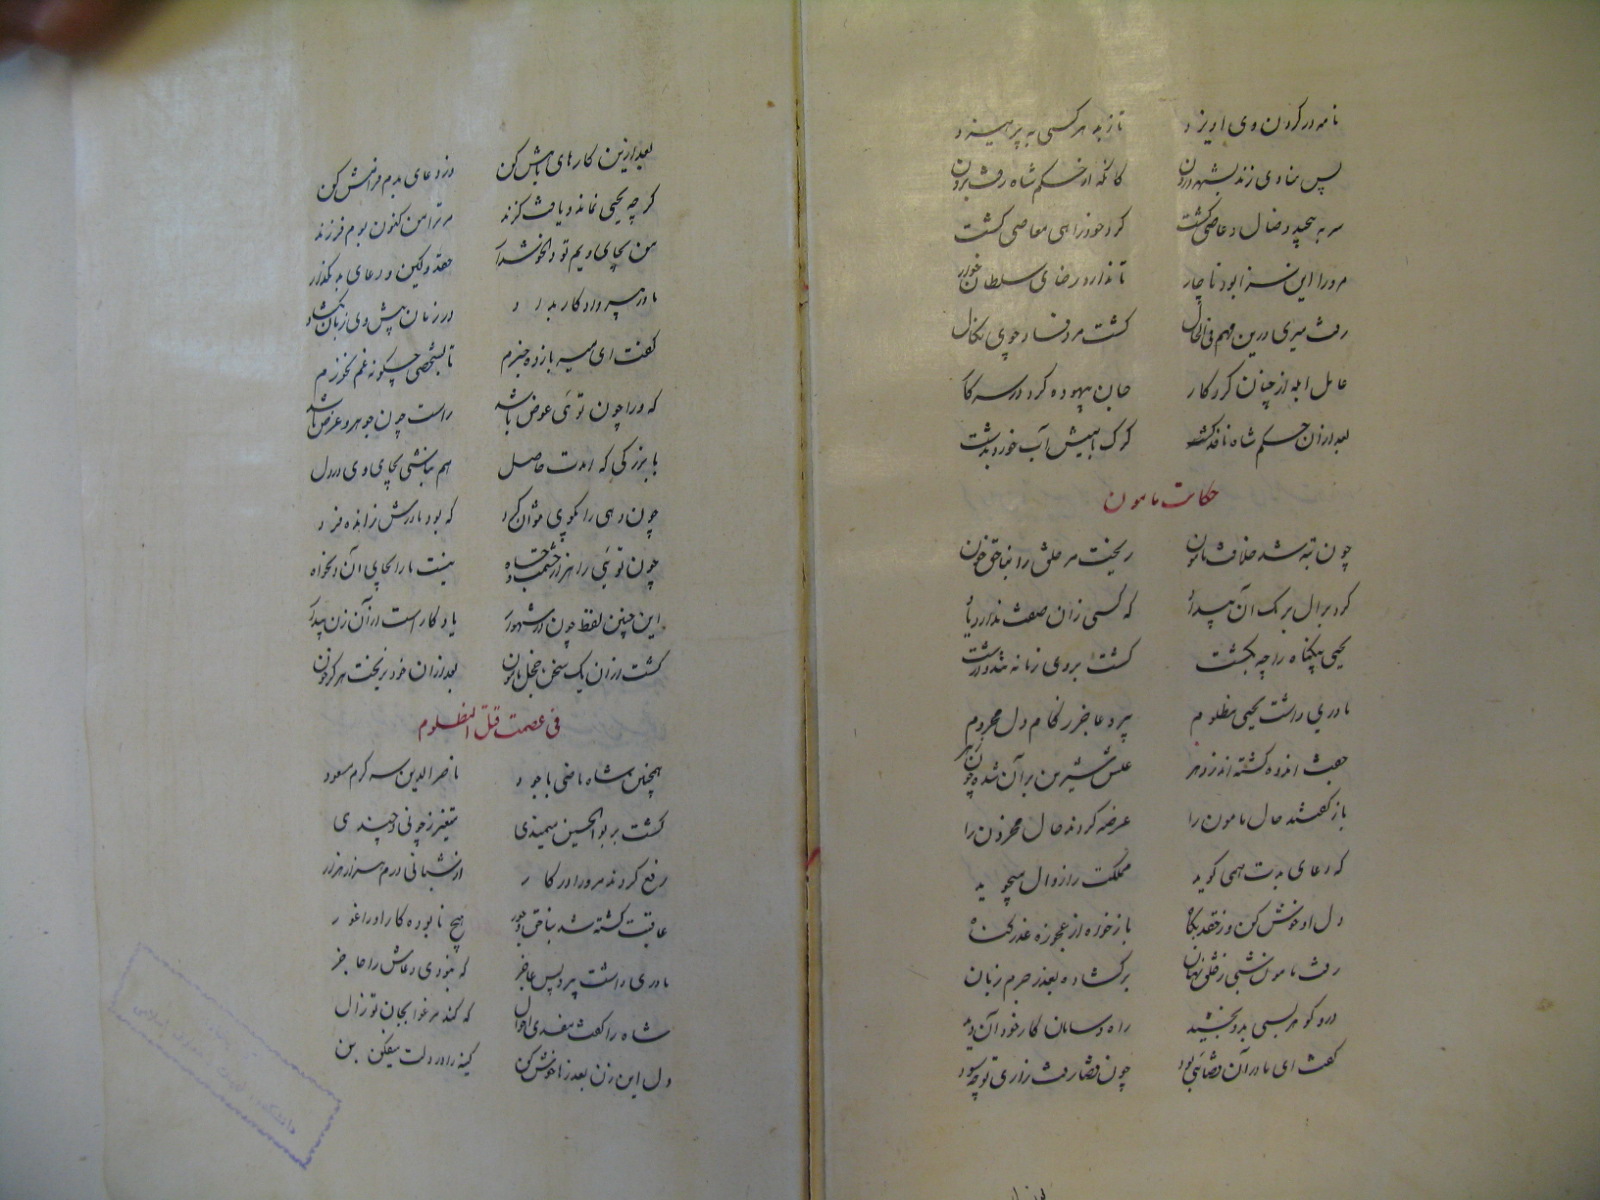 نامه در کردن وی آویزد تا ز بد هر کسی بپرهیزد
پس منادی زند بشهر درون کانکه از حکم شاه رفت برون
سر بپیچید و ضال و عاصی گشت کرد خود را همی معاصی کشت
مرو را این سزا بود ناچار تا ندارد رضای سلطان خوار
رفت میری درین مهم فی الحال گشت مرد فساد جوی نکال
عامل ابله از چنان کردار جان بیهوده کرد در سر کار
بعد از آن حکم شاه نافذ گشت گرک با میش آب خورد بدشت
حکایت مامون
چون تبه شد خلافت مامون ریخت مر خلق را بناحق خون
کرد بر آل برمک آن بیداد که کسی زان صفت ندارد یاد
یحیی بیگناه را چو بکشت گشت بر وی زمانه تند و درشت
مادری داشت یحیی مظلوم پیر و عاجز ز کام دل محروم
جفت اندوه گشته اندر دهر عیش شیرین بر آن شده چون زهر
باز گفتند حال مامون را عرضه کردند حال محزون را
که دعای بدت همی گوید مملکت را زوال میجوید
دل او خوش کن و ز حقد بکاه باز خر زه از عجوزه عذر گناه
رفت مامون شبی ز خلق نهان برگشاده بعذر جرم زبان
در و گوهر بسی بدو بخشید راه و سامان کار خود آن دید
گفت ای مادر آن قضائی بود چون قضا رفت زاری تو چه سود
بعد ازین کارهای بهش کن وز دعای بدم فرامش کن
گرچه یحیی نماند و یافت گزند مر ترا من کنون بوم فرزند
من بجای ویم تو دلخوش دار حقد و کین و دعای بد بگذار
مادر پیر داد کار بداد در زمان پیش وی زبان بگشاد
گفت ای میر باز ده خبرم تا بشخصی چگونه غم نخورم
که ورا چون توئی عوض باشد راست چون جوهر و عرض باشد
با بزرگی که امدت حاصل هم نباشی بجای وی در دل
چون دهی را نکوی موآن کرد که بود مادرش زاینده فرد
چون توئی را هزار حشمت و جاه نیست ما را بجای آن دلخواه
این چنین لفظ چون در شهوار یادگار است از آن زن بیدار
گشت از آن یک سخن خجل مامون بعد از آن خود نریخت هرگز خون
فی عصمت قتل المظلوم
همچنین شاه ماضی باجود ناصرالدین سر کرم مسعود
گشت بر بوالحسین میمندی متغیر ز چونی و چندی
رفع کردند مر ورا در کار از شبانی درم سزار هزار
عاقبت کشته شد بناحق و جور هیچ نابوده کار او را غور
مادری داشت پیر و بس عاجز که نبودی دعاش را حاجز
شاه را گفت بیغدی احوال که کند مرغوا بجان تو زال
دل این زن بعذرها خوش کن کینه را در دلت بیفکن بن